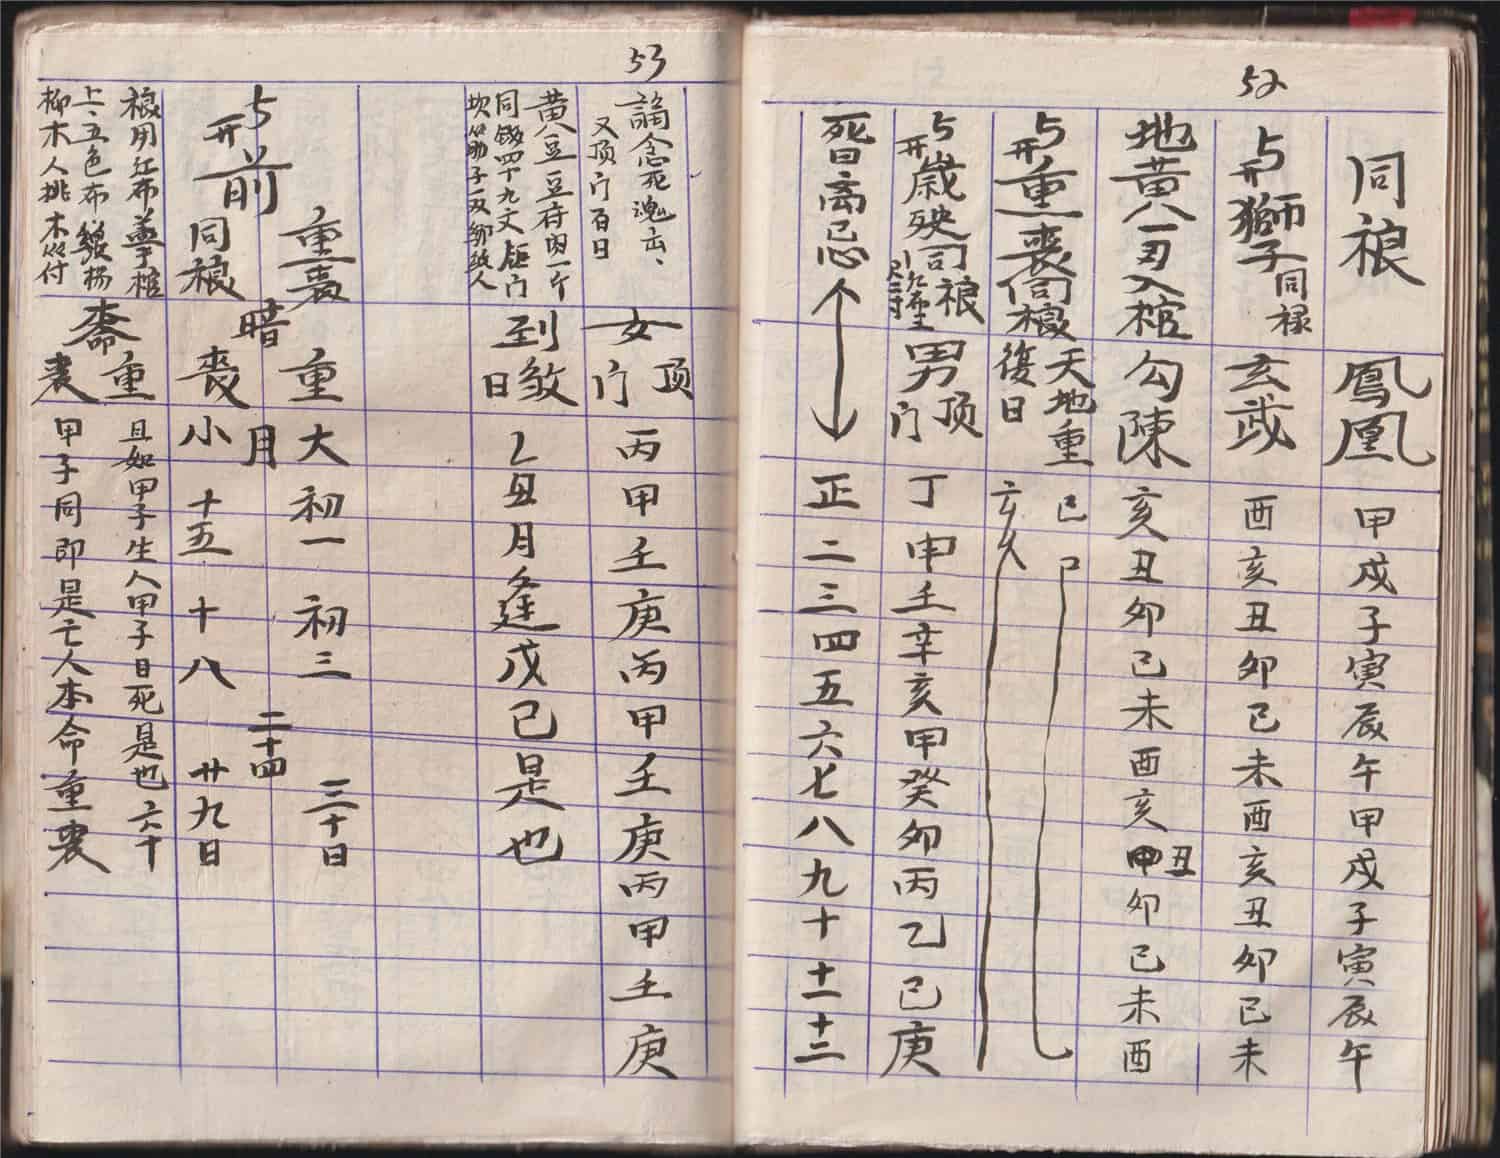 52
同𥘵
鳳凰
甲戌子寅辰午甲戌子寅辰午
与开獅子同禄
玄武
酉亥丑卯巳未酉亥丑卯巳未
地黄八一丑入棺
勾陳
亥丑卯巳未酉亥丑卯巳未酉
与开重喪同
天地重
復日
巳
亥
与开歲殃司
男顶门
丁申壬辛亥甲癸卯丙乙己庚
死日离忌
正二三四五六七八九十十一十二
53
念死魂去、
又顶门百日
女顶门
丙甲壬庚丙甲壬庚丙甲壬庚
黄豆豆府肉一个
同錢四十九文
到敛日
乙丑月逢戊己是也
重喪
重
大
初一
初三
三十日
暗
月
二十四
与开前
同
喪
小
十五
十八
廿九日
用红布盖于棺
上、五色布
杨
柳木人桃木
付
斋
重
喪
且如甲子生人甲子日死是也六十
甲子同即是亡人本命重喪